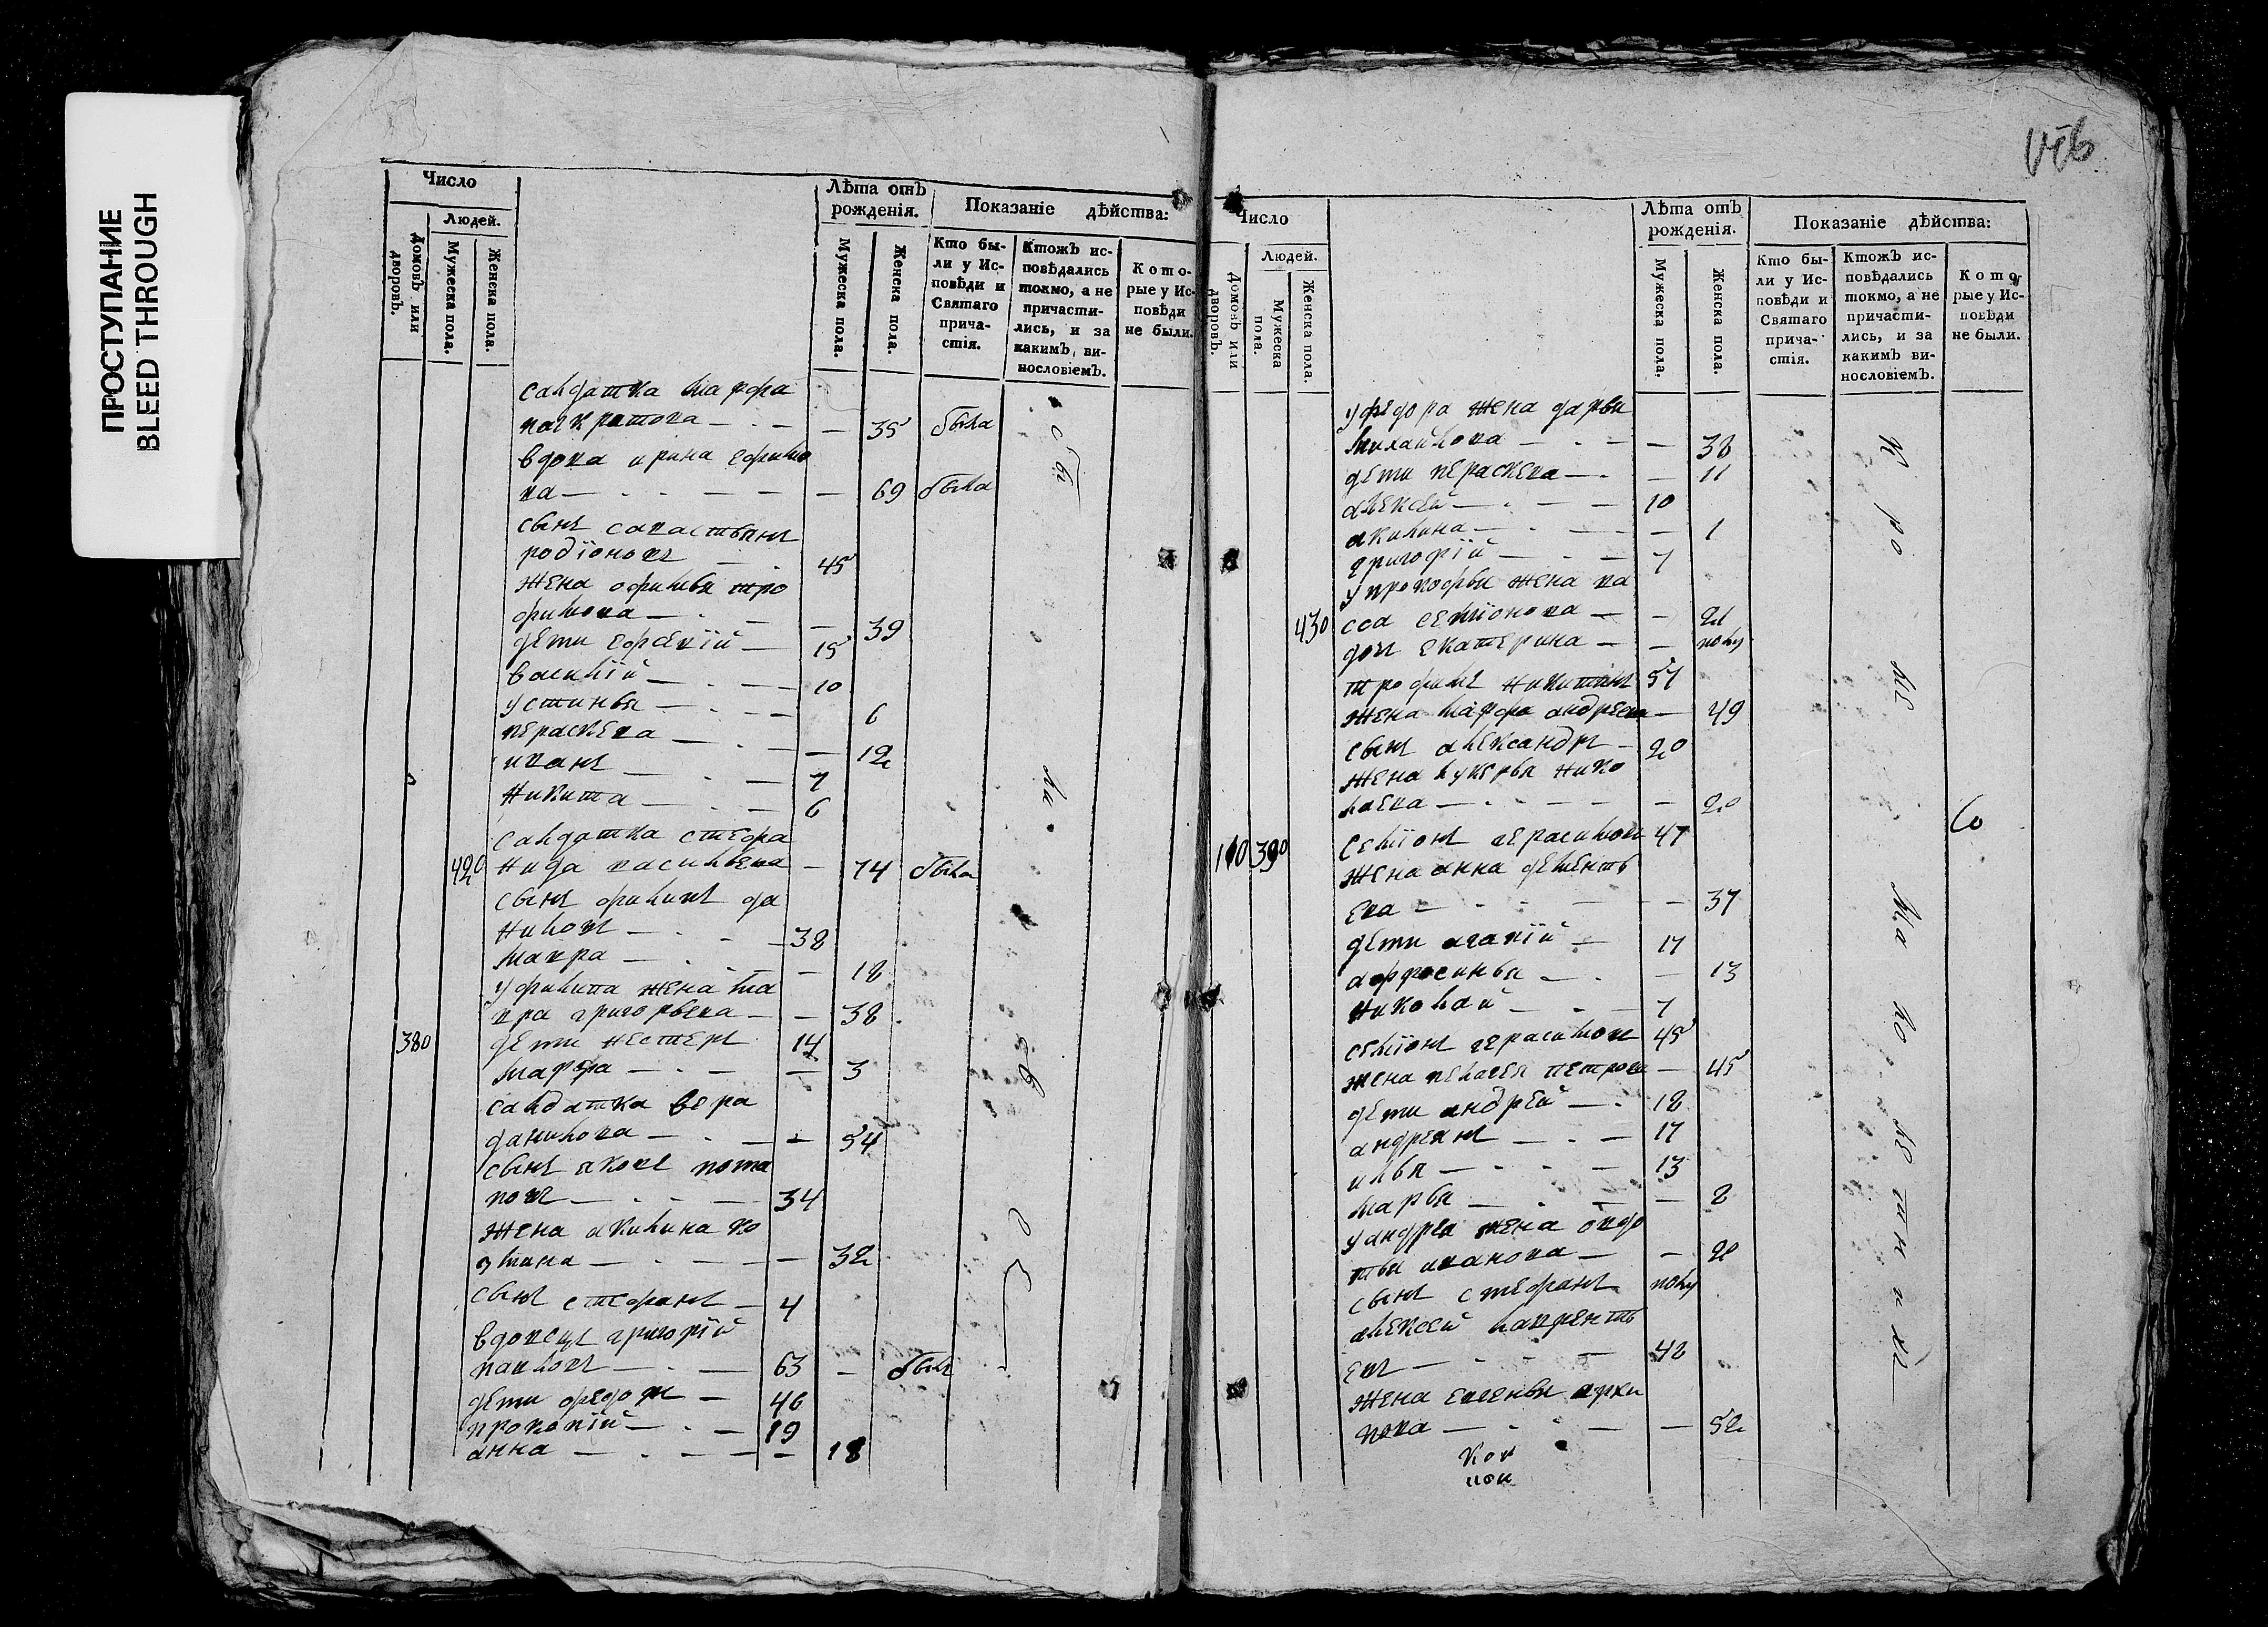 ПРОСТУПАНИЕ
BLEED THROUGH
Число
Людей.
Домовъ или дворовъ.
Мужеска пола.
Женска пола.
Лѣта отъ рожденія.
Мужеска пола.
Женска пола.
Показаніе дѣйства:
Кто были у Исповѣди и Святаго причастія.
Ктожъ исповѣдались токмо, а не причастились, и за какимъ винословіемъ.
Которые у Исповѣди не были.
салдатка марфа
панкратова — 35 была
вдова ирина ефимо
ва — 69 была
сынъ савастьянъ
родїоновъ 45
жена офимья тро
фимова — 39
дети 15
василїй — 10
устинья — 6
пераскева — 12
иванъ — 7
никита — 6
салдатка стефа
420 нида васильева — 74 была
сынъ филипъ да
ниловъ — 38
мавра — 18
у филипа жена ма
вра григорьева — 38
380 дети нестеръ 14
марфа — 3
салдатка вера
данилова — 54
сынъ яковъ пота
повъ — 34
жена акилина ко
змина — 32
сынъ стефанъ — 4
вдовецъ григорїй
павловъ — 63 — былъ
дети федоръ — 46
прокопїй — 19
анна — 18
Число
Людей.
Домовъ или дворовъ.
Мужеска пола.
Женска пола.
Лѣта отъ рожденія.
Мужеска пола.
Женска пола.
Показаніе дѣйства:
Кто были у Исповѣди и Святаго причастія.
Ктожъ исповѣдались токмо, а не причастились, и за какимъ винословіемъ.
Которые у Исповѣди не были.
у федора жена дарья
михайлова — 38
дети пераскева — 11
алексей — 10
акилина — 1
григорїй — 7
у прокофья жена ва
430 сса семїонова — 21
дочь екатерина — полу
трофимъ никитинъ 57
жена марфа андреева — 49
сынъ александръ — 20
жена лукерья нико
лаева — 20
110 390 семїонъ герасимовъ 47
жена анна дементь
ева — 37
дети агапїй — 17
афросинья — 13
николай — 7
семїонъ герасимовъ 45
жена пелагея петрова — 45
дети андрей — 18
андреянъ — 17
илья — 13
марья — 8
у андрея жена овдо
тья иванова — 20
сынъ стефанъ полу
алексей лаврентъ
евъ — 42
жена евгенья архи
пова — 52